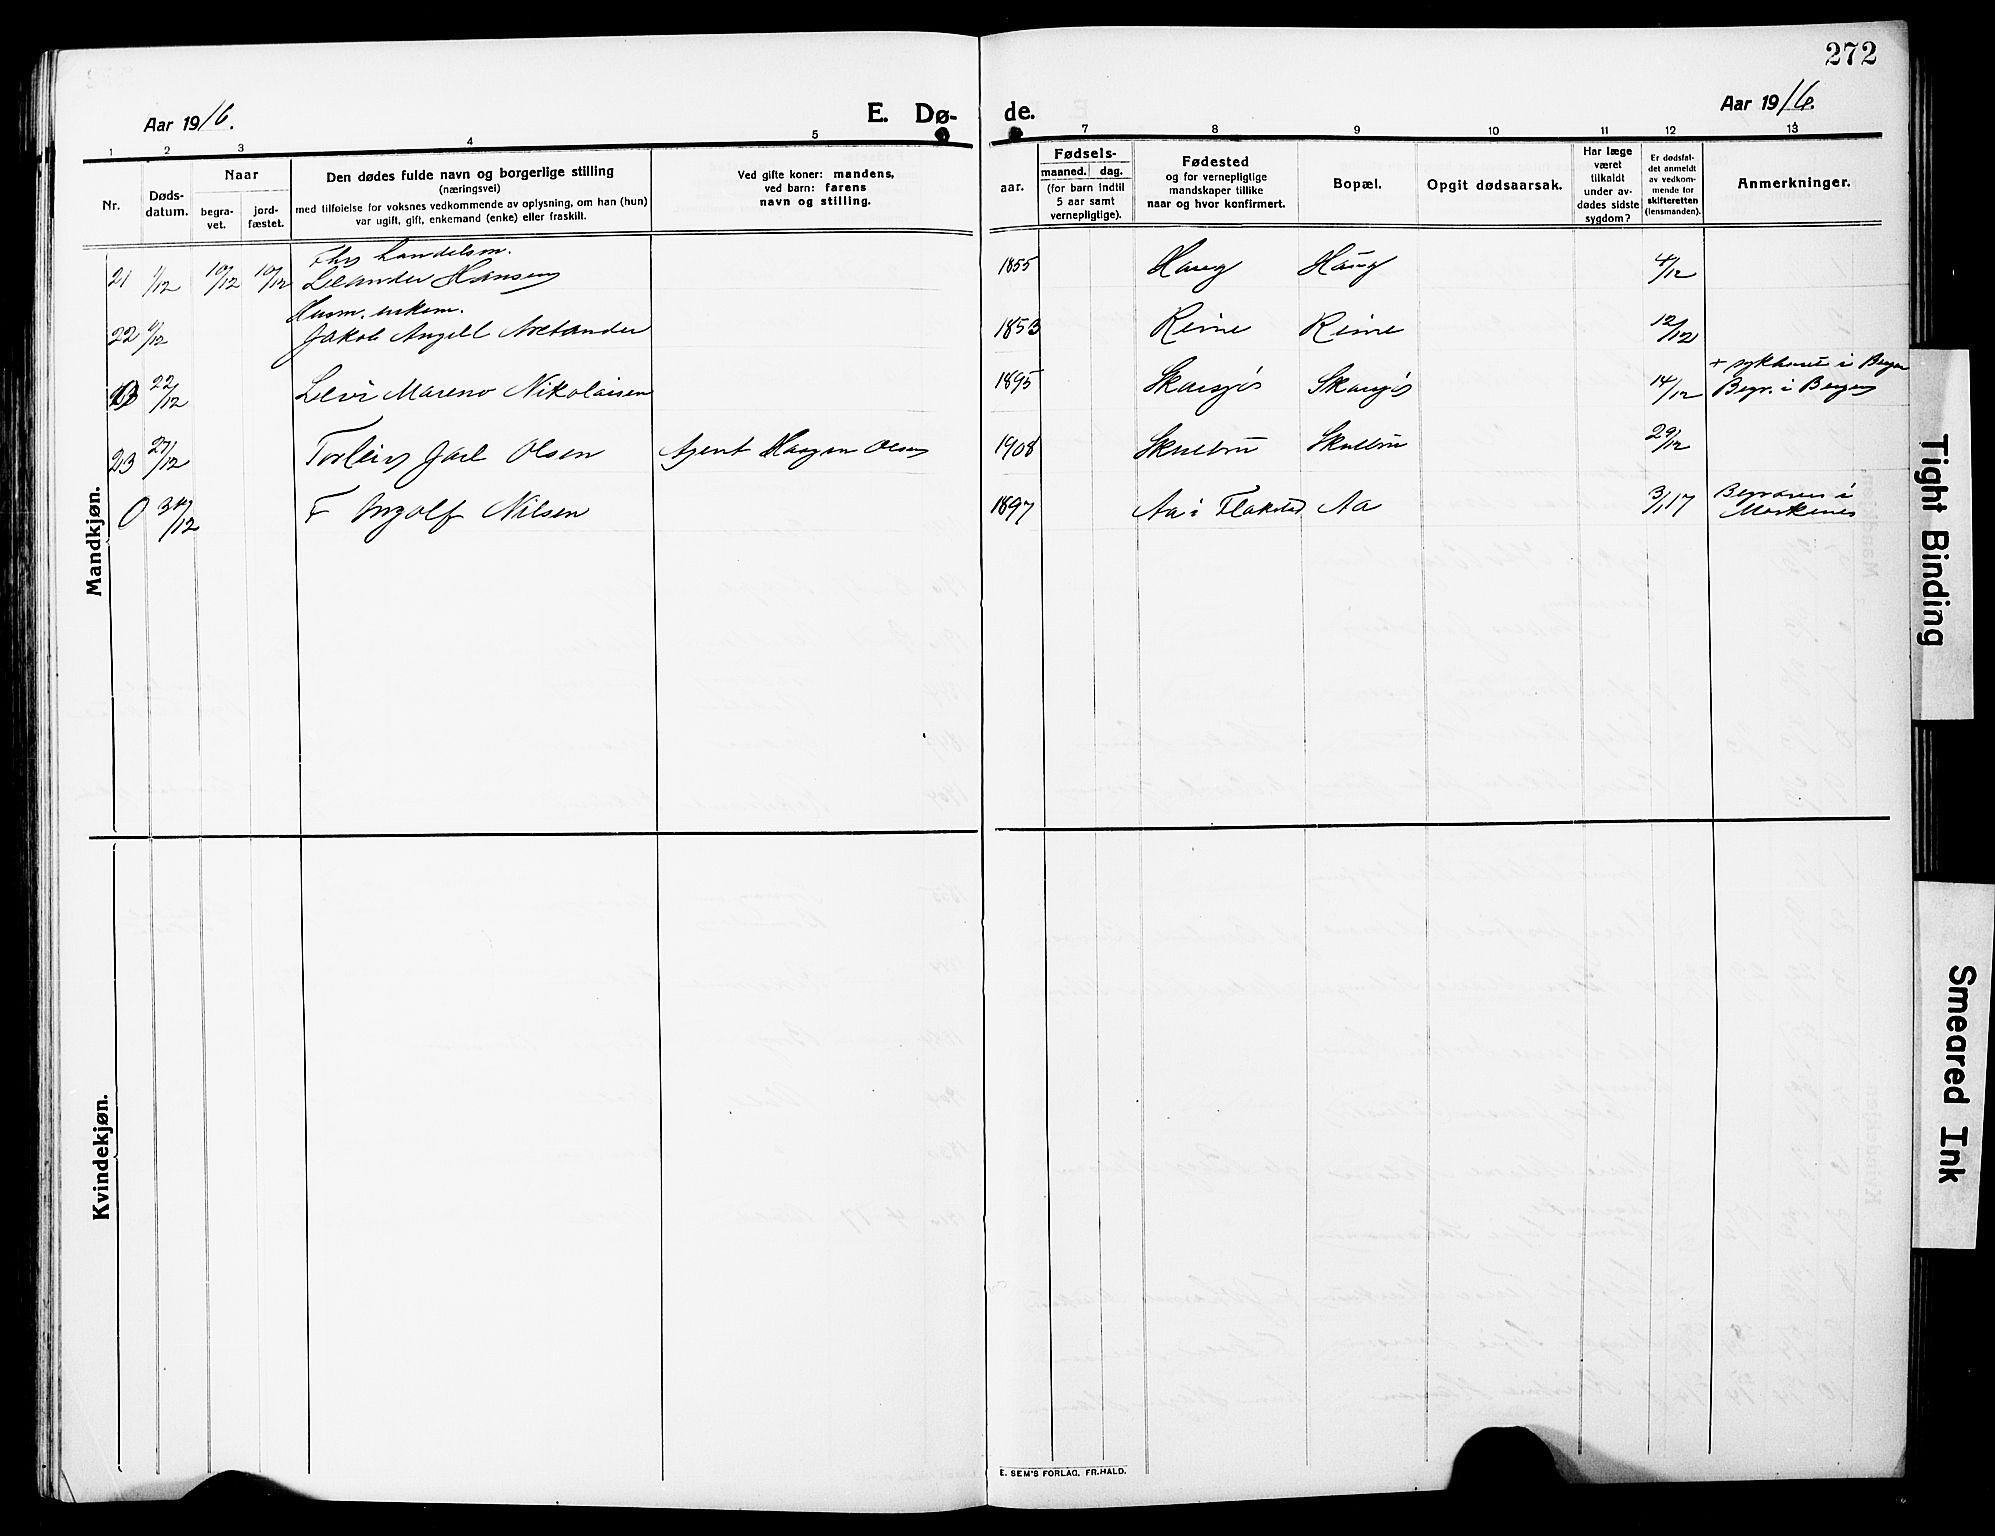 272
Aar 1916.
E. Dø-
de.
Aar 1916.
1 2 3 4 5
7 8 9 10 11 12 13
Nr.
Døds-
datum.
Naar
begra-
vet.
jord-
fæstet.
Den dødes fulde navn og borgerlige stilling
(næringsvei)
med tilføielse for voksnes vedkommende av oplysning, om han (hun)
var ugift, gift, enkemand (enke) eller fraskilt.
Ved gifte koner: mandens,
ved barn: farens
navn og stilling.
aar.
Fødsels-
maaned. dag.
(for barn indtil
5 aar samt
vernepligtige).
Fødested
og for vernepligtige
mandskaper tillike
naar og hvor konfirmert.
Bopæl.
Opgit dødsaarsak.
Har læge
været
tilkaldt
under av-
dødes sidste
sygdom?
Er dødsfal-
det anmeldt
av vedkom-
mende for
skifteretten
(lensmanden).
Anmerkninger.
Mandkjøn.
Landelsm.
21 1/12 10/12 10/12 Leander Hansen 1855 Haug Haug 4/12
Husm. enkem.
22 /12 Jakob Angell 1853 Reine Reine 12/12
+ sykhuset i Bergen
22/12 Levi Mareno Nikolaisen 1895 14/12 Begr. i Bergen
23 27/12 Torleiv Jarl Olsen Agent Haagen Olsen 1908 29/12
0 30/12 F Ingolf Nilsen 1897 Aa i Flakstad Aa 3/1 17 Begraves i
Moskenes
Kvindekjøn.
E. SEM'S FORLAG, FR.HALD.
Tight Binding
Smeared Ink